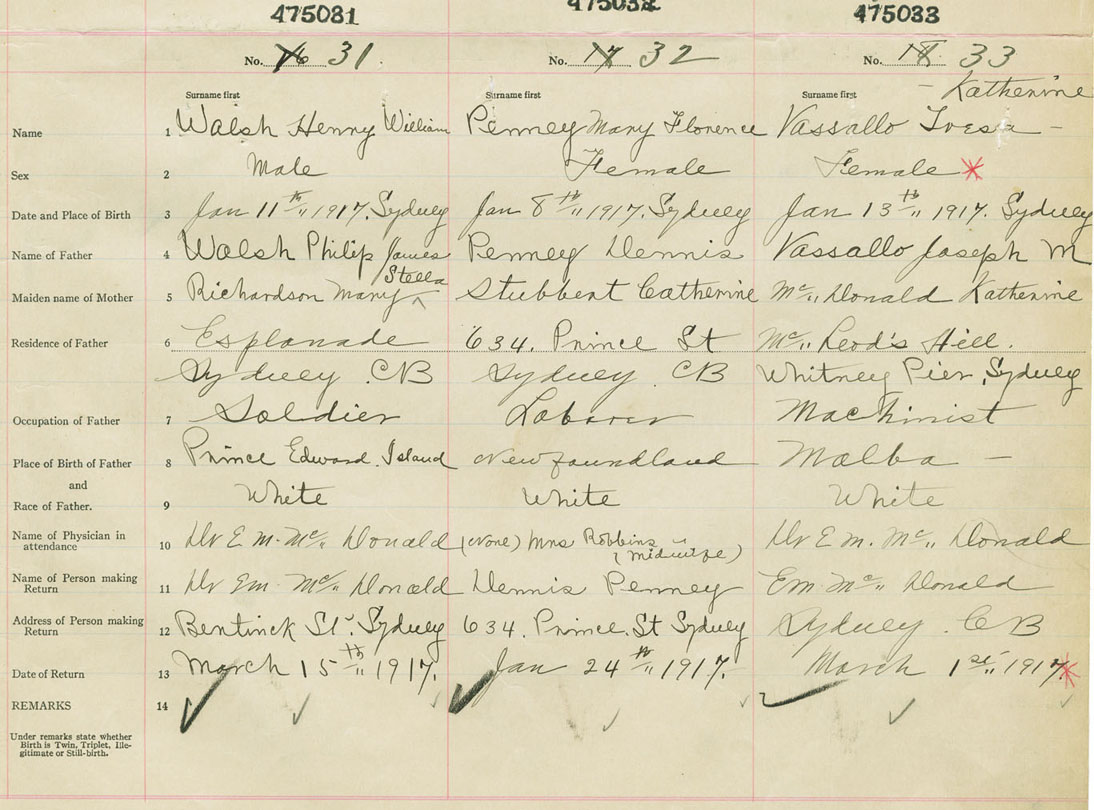 475031 475032 475033
No. 16 31. No. 17 32 No. 18 33
Surname first Surname first Surname first - Katherine
Name 1 Walsh Henry William Penney Mary Florence Vassallo Tresa -
Sex 2 Male Female Female *
Date and Place of Birth 3 Jan 11th,, 1917. Sydney Jan 8th,, 1917. Sydney Jan 13th,, 1917. Sydney
Name of Father 4 Walsh Philip James Penney Dennis Vassallo Joseph M
Stella
Maiden name of Mother 5 Richardson Mary ^ Stubbert Catherine Mc,, Donald Katherine
Residence of Father 6 Esplanade 634. Prince St Mc,, Leod's Hill.
Sydney CB Sydney CB Whitney Pier, Sydney
Occupation of Father 7 Soldier Laborer Machinist
Place of Birth of Father 8 Prince Edward Island Newfoundland Malba -
and
Race of Father. 9 White White White
Name of Physician in attendance 10 Dr E. M. Mc,, Donald (None) Mrs Robbins (Midwife) Dr E M. Mc,, Donald
Name of Person making Return 11 Dr E M. Mc,, Donald Dennis Penney E M. Mc,, Donald
Address of Person making Return 12 Bentinck St. Sydney 634. Prince. St Sydney Sydney. CB
Date of Return 13 March 15th,, 1917. Jan 24th,, 1917. March 1st,, 1917. *
REMARKS 14
Under remarks state whether
Birth is Twin, Triplet, Ille-
gitimate or Still-birth.